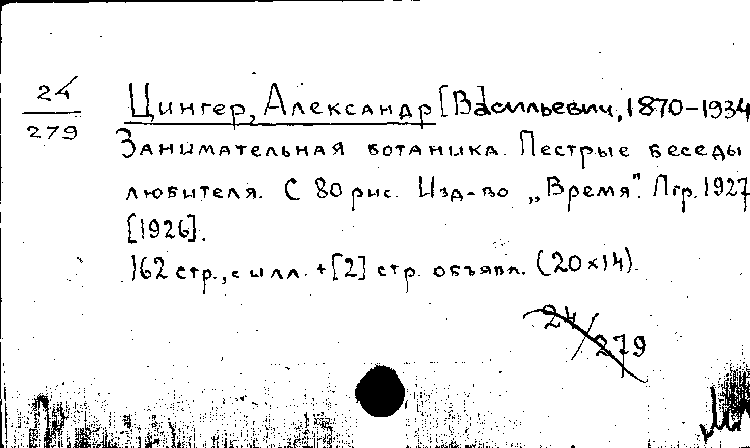 24
279
Цингер, Александр [Васильевич, 1870-1934
Занимательная ботаника. Пестрые беседы
любителя. С 80 рис. Изд-во „Время". Лгр. 1927
[1926].
162 стр., с илл. + [2] стр. объявл. (20×14).
24/279